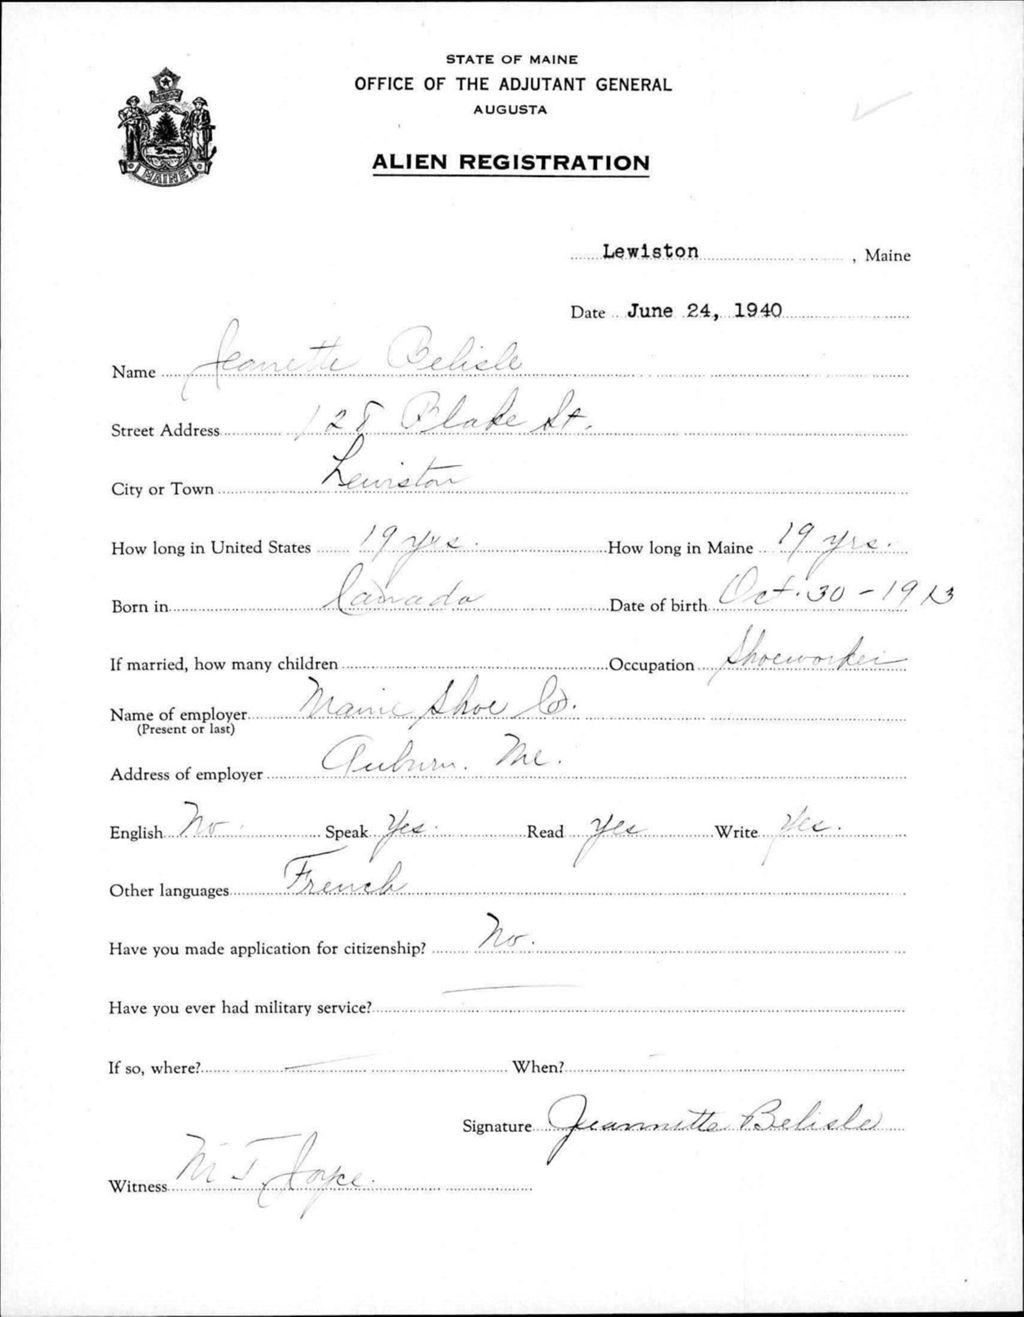 STATE OF MAINE
OFFICE OF THE ADJUTANT GENERAL
AUGUSTA
MAINE
ALIEN REGISTRATION
Lewiston, Maine
Date June 24, 1940
Name Jeanette Belisle
Street Address 128 Blake St.
City or Town Lewiston
How long in United States 19 yrs. How long in Maine 19 yrs.
Born in Canada Date of birth Oct. 30 - 1913
If married, how many children Occupation Shoeworker
Name of employer Maine Shoe Co.
(Present or last)
Address of employer Auburn. Me.
English No. Speak Yes. Read Yes Write Yes.
Other languages French
Have you made application for citizenship? No.
Have you ever had military service? —
If so, where? — When? —
Signature Jeannette Belisle
Witness M. T. Joyce.